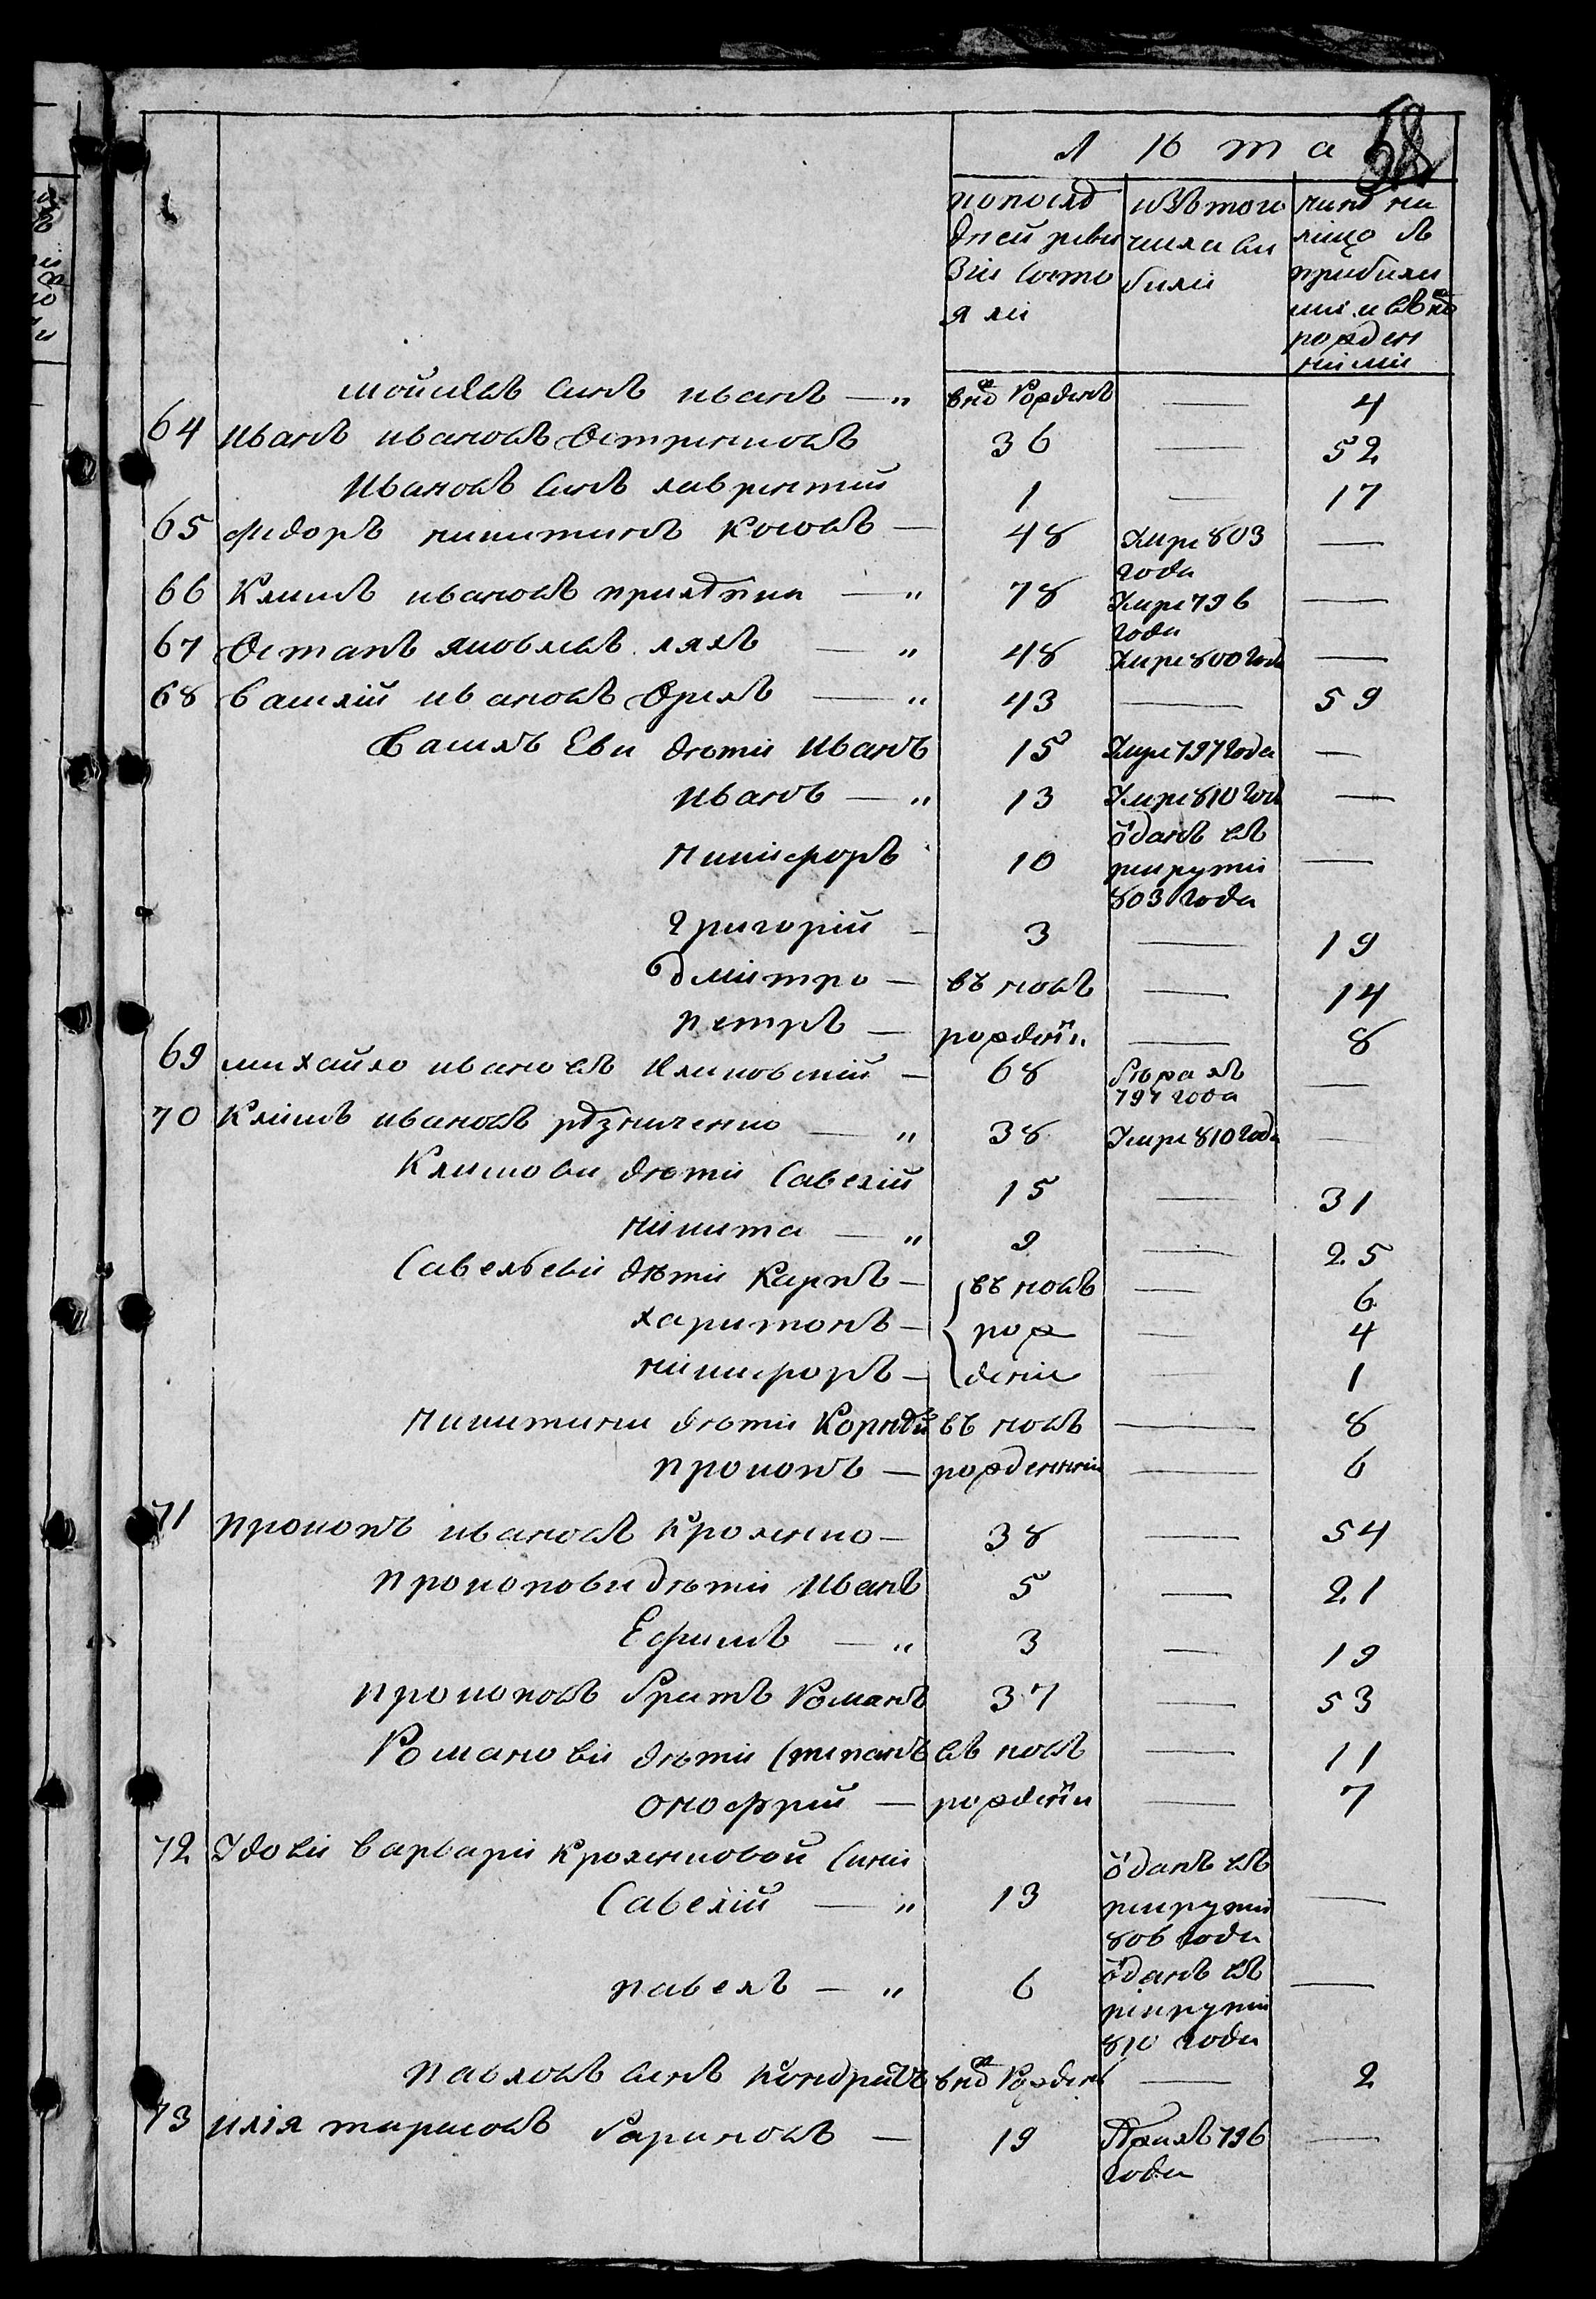 58
лѣта
попослѣд
дней реви
зіи состо
яли
изътого
числа вы
были
нынѣ на
лицо съ
прибылы
ми и внов
рожден
ними
сынъ иванъ —„ внов рожденъ — 4
64 иванъ ивановъ 36 — 52
ивановъ сынъ лаврентий 1 — 17
65 федоръ никитинъ косовъ — 48 умре 803 года —
66 Климъ ивановъ 78 умре 796 года —
67 Остапъ яковлевъ ляхъ —„ 48 умре 800 года —
68 василий ивановъ Орелъ —„ 43 — 59
василь Евы дѣти иванъ 15 умре 797 года —
иванъ —„ 13 умре 810 года —
никифоръ 10 ѿданъ въ рекруты 803 года —
григорий — 3 — 19
дмитро — въ новъ — 14
петръ — рожденны — 8
69 михайло ивановъ — 68 бѣжалъ 797 года —
70 Климъ ивановъ рѣзниченко —„ 38 умре 810 года —
Климовы дѣти савелий 15 — 31
никита —„ 9 — 25
савельевы дѣти карпъ — въ новъ — 6
харитонъ — рож — 4
никифоръ — дении — 1
никитины дѣти Корнѣй въ новъ — 8
прокопъ — рожденний — 6
71 прокопъ ивановъ кроленко — 38 — 54
прокоповы дѣти иванъ 5 — 21
Ефимъ —„ 3 — 19
прокоповъ братъ Романъ 37 — 53
Романовы дѣти степанъ въ новъ — 11
онофрий — рожденны — 7
72 Удовы варвары кроленковой сыны
савелий —„ 13 ѿданъ въ рекруты 806 года —
павелъ —„ 6 ѿданъ въ рекруты 810 года —
павловъ сынъ кондратъ внов рожденъ — 2
73 илия тарасовъ — 19 796 года —